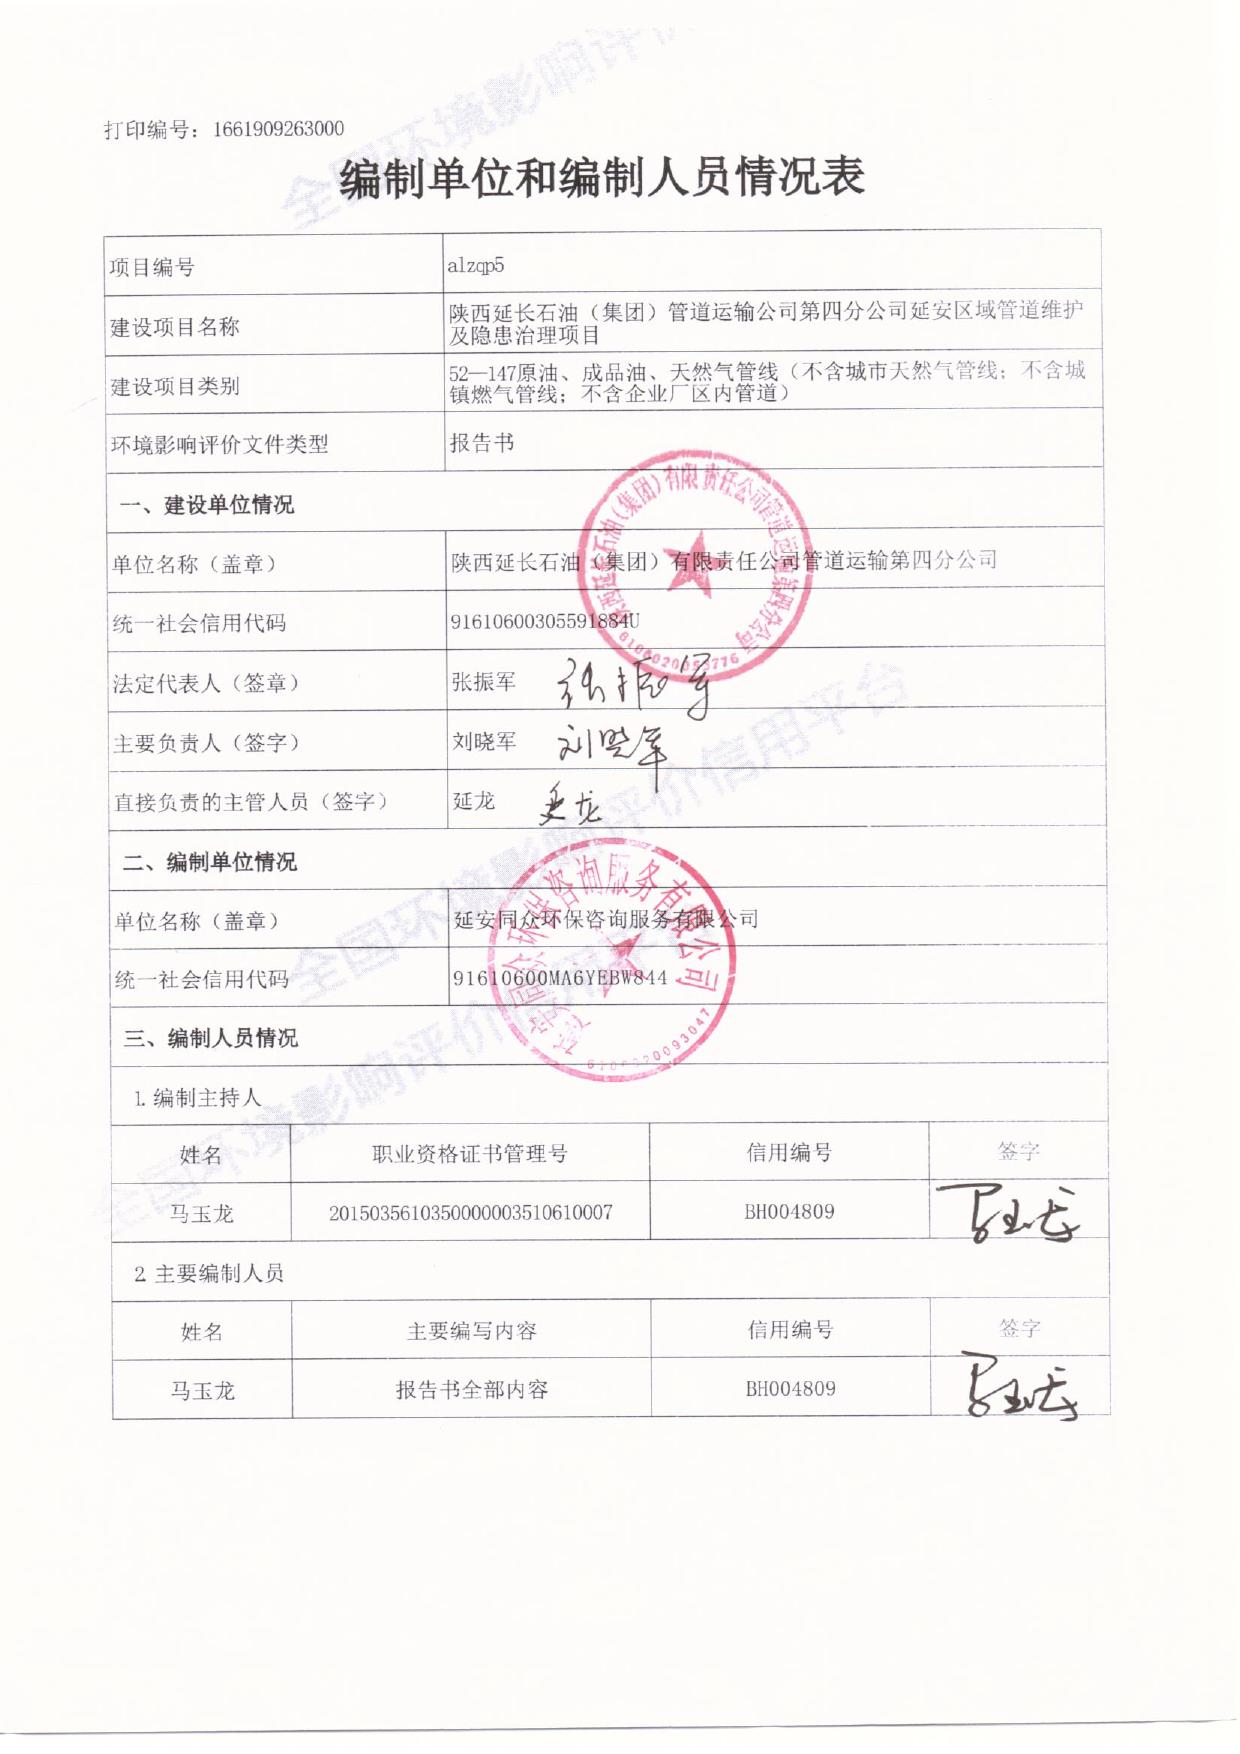 打印编号：1661909263000
编制单位和编制人员情况表
项目编号 alzqp5
建设项目名称 陕西延长石油（集团）管道运输公司第四分公司延安区域管道维护
及隐患治理项目
建设项目类别 52—147原油、成品油、天然气管线（不含城市天然气管线；不含城
镇燃气管线；不含企业厂区内管道）
环境影响评价文件类型 报告书
一、建设单位情况
单位名称（盖章） 陕西延长石油（集团）有限责任公司管道运输第四分公司
统一社会信用代码 91610600305591884U
法定代表人（签章） 张振军 张振军
主要负责人（签字） 刘晓军 刘晓军
直接负责的主管人员（签字） 延龙 延龙
二、编制单位情况
单位名称（盖章） 延安同众环保咨询服务有限公司
统一社会信用代码 91610600MA6YEBW844
三、编制人员情况
1.编制主持人
姓名 职业资格证书管理号 信用编号 签字
马玉龙 2015035610350000003510610007 BH004809 马玉龙
2 主要编制人员
姓名 主要编写内容 信用编号 签字
马玉龙 报告书全部内容 BH004809 马玉龙
陕西延长石油（集团）有限责任公司管道运输第四分公司
6106020053776
延安同众环保咨询服务有限公司
全国环境影响评价信用平台